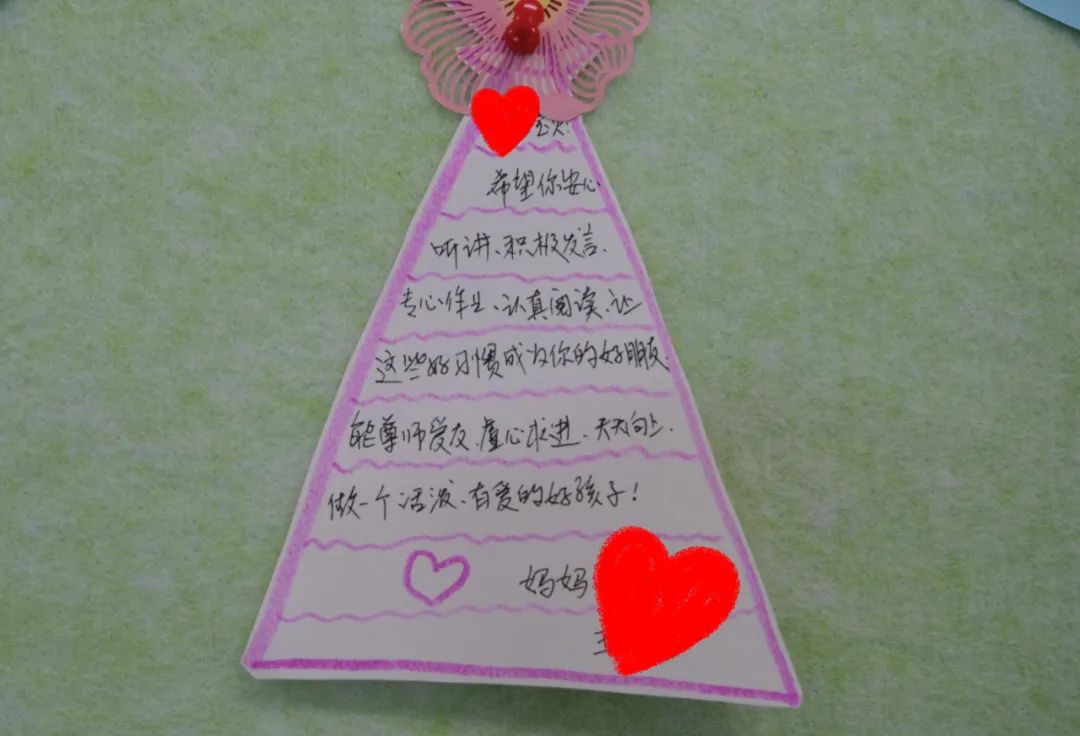 希望你安心
听讲、积极发言、
专心作业、认真阅读、让
这些好习惯成为你的好朋友,
能尊师爱友、虚心求进、天天向上、
做一个活泼、有爱的好孩子!
妈妈